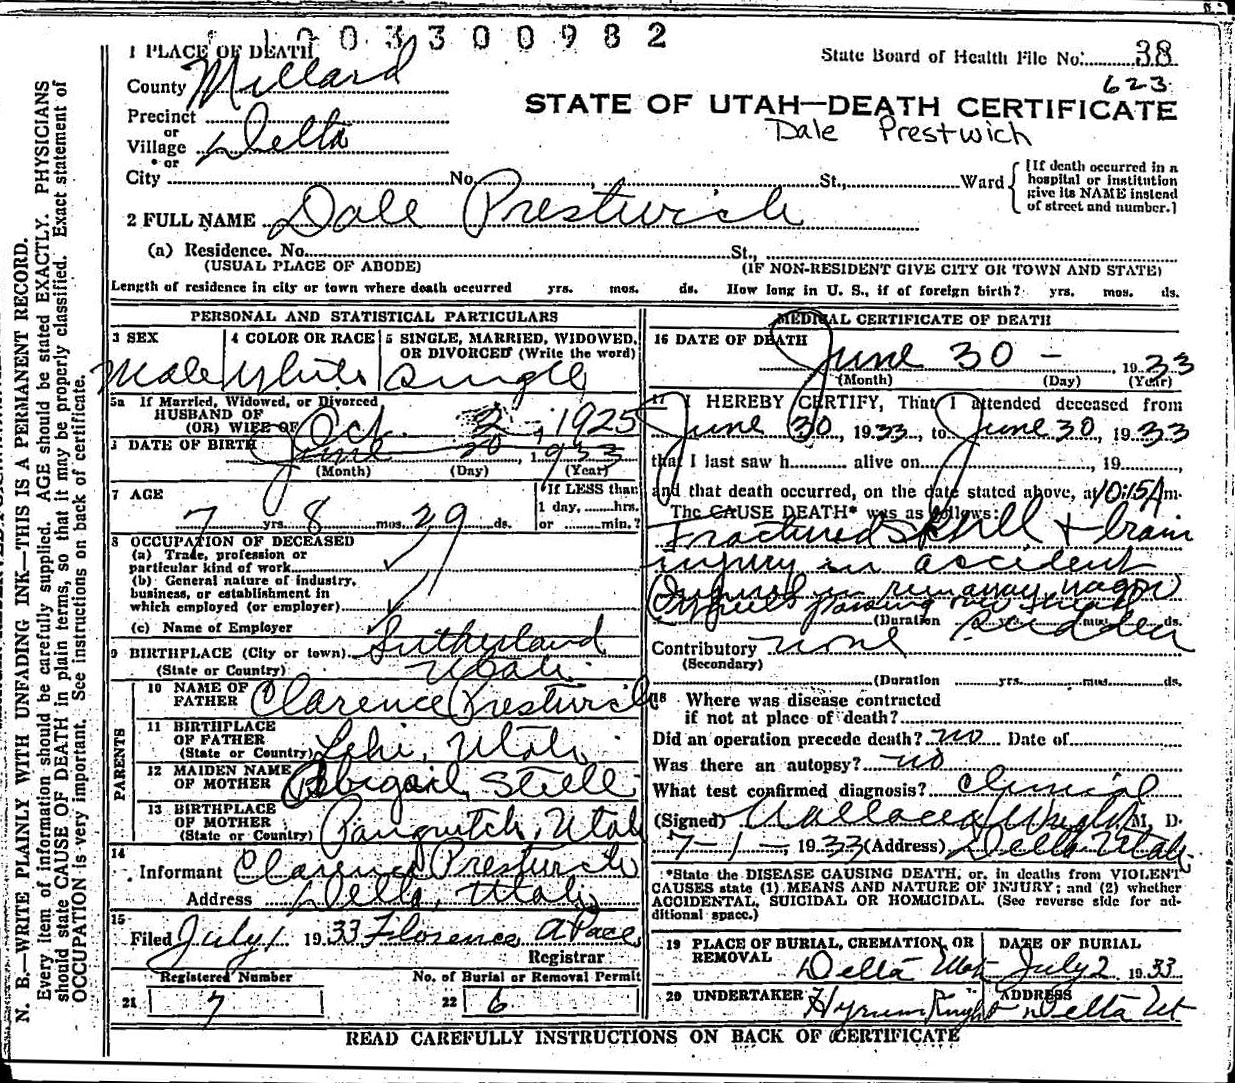 1003300982
1 PLACE OF DEATH
State Board of Health File No. 38
County Millard
623
STATE OF UTAH—DEATH CERTIFICATE
Dale Prestwich
Precinct
or
Village Delta
or
City No. St., Ward
[If death occurred in a hospital or institution give its NAME instead of street and number.]
2 FULL NAME Dale Prestwich
(a) Residence. No. St.,
(USUAL PLACE OF ABODE) (IF NON-RESIDENT GIVE CITY OR TOWN AND STATE)
Length of residence in city or town where death occurred yrs. mos. ds. How long in U. S., if of foreign birth? yrs. mos. ds.
PERSONAL AND STATISTICAL PARTICULARS
3 SEX
Male
4 COLOR OR RACE
White
5 SINGLE, MARRIED, WIDOWED, OR DIVORCED (Write the word)
Single
5a If Married, Widowed, or Divorced
HUSBAND OF
(OR) WIFE OF
Oct. 2, 1925
DATE OF BIRTH June 30, 1933
(Month) (Day) (Year)
7 AGE
7 yrs. 8 mos. 29 ds.
If LESS than
1 day, hrs.
or min.?
8 OCCUPATION OF DECEASED
(a) Trade, profession or
particular kind of work
(b) General nature of industry,
business, or establishment in
which employed (or employer)
(c) Name of Employer
9 BIRTHPLACE (City or town) Sutherland
(State or Country) Utah.
PARENTS
10 NAME OF FATHER Clarence Prestwich
11 BIRTHPLACE OF FATHER
(State or Country) Lehi, Utah
12 MAIDEN NAME OF MOTHER Abigail Steele
13 BIRTHPLACE OF MOTHER
(State or Country) Panguitch, Utah
14
Informant Clarence Prestwich
Address Delta, Utah
15
Filed July 1 1933 Florence A Pace
Registrar
Registered Number No. of Burial or Removal Permit
21 7 22 6
MEDICAL CERTIFICATE OF DEATH
16 DATE OF DEATH
June 30 - , 1933
(Month) (Day) (Year)
17 I HEREBY CERTIFY, That I attended deceased from
June 30, 1933, to June 30, 1933
that I last saw h alive on , 19 ,
and that death occurred, on the date stated above, at 10:15 A m.
The CAUSE DEATH* was as follows:
Fractured Skull + brain
injury in accident
Injured in runaway wagon
wheels passing over head
(Duration yrs. mos. ds.
sudden
Contributory none
(Secondary)
(Duration yrs. mos. ds.
18 Where was disease contracted
if not at place of death?
Did an operation precede death? no Date of
Was there an autopsy? no
What test confirmed diagnosis? Clinical
(Signed) M. D.
7-1-, 1933 (Address) Delta Utah.
*State the DISEASE CAUSING DEATH, or, in deaths from VIOLENT
CAUSES state (1) MEANS AND NATURE OF INJURY; and (2) whether
ACCIDENTAL, SUICIDAL OR HOMICIDAL. (See reverse side for ad-
ditional space.)
19 PLACE OF BURIAL, CREMATION, OR REMOVAL
Delta Utah
DATE OF BURIAL
July 2 1933
20 UNDERTAKER Hyrum Knight
ADDRESS
Delta Ut
READ CAREFULLY INSTRUCTIONS ON BACK OF CERTIFICATE
N. B.—WRITE PLAINLY WITH UNFADING INK—THIS IS A PERMANENT RECORD.
Every item of information should be carefully supplied. AGE should be stated EXACTLY. PHYSICIANS
should state CAUSE OF DEATH in plain terms, so that it may be properly classified. Exact statement of
OCCUPATION is very important. See instructions on back of certificate.